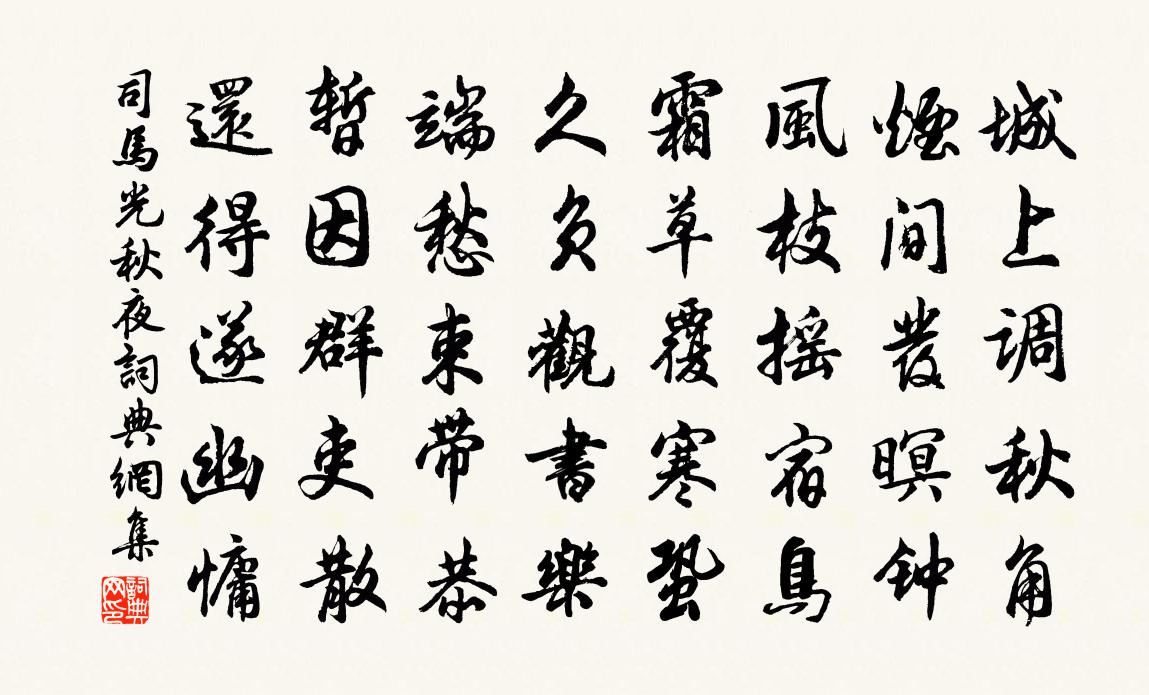 城上调秋角
煙间發暝钟
風枝摇宿鳥
霜草覆寒蛩
久負觀書樂
端愁束帶恭
暫因群吏散
還得遂幽慵
司馬光秋夜詞典網集
詞典网印